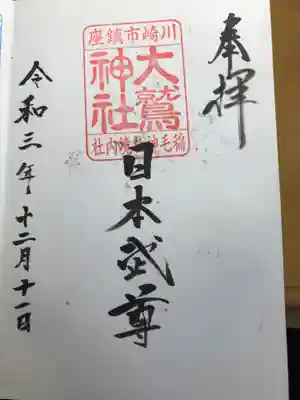 奉拝
川崎市鎮座
大鷲神社
稲毛神社境内社
日本武尊
令和三年十二月十一日